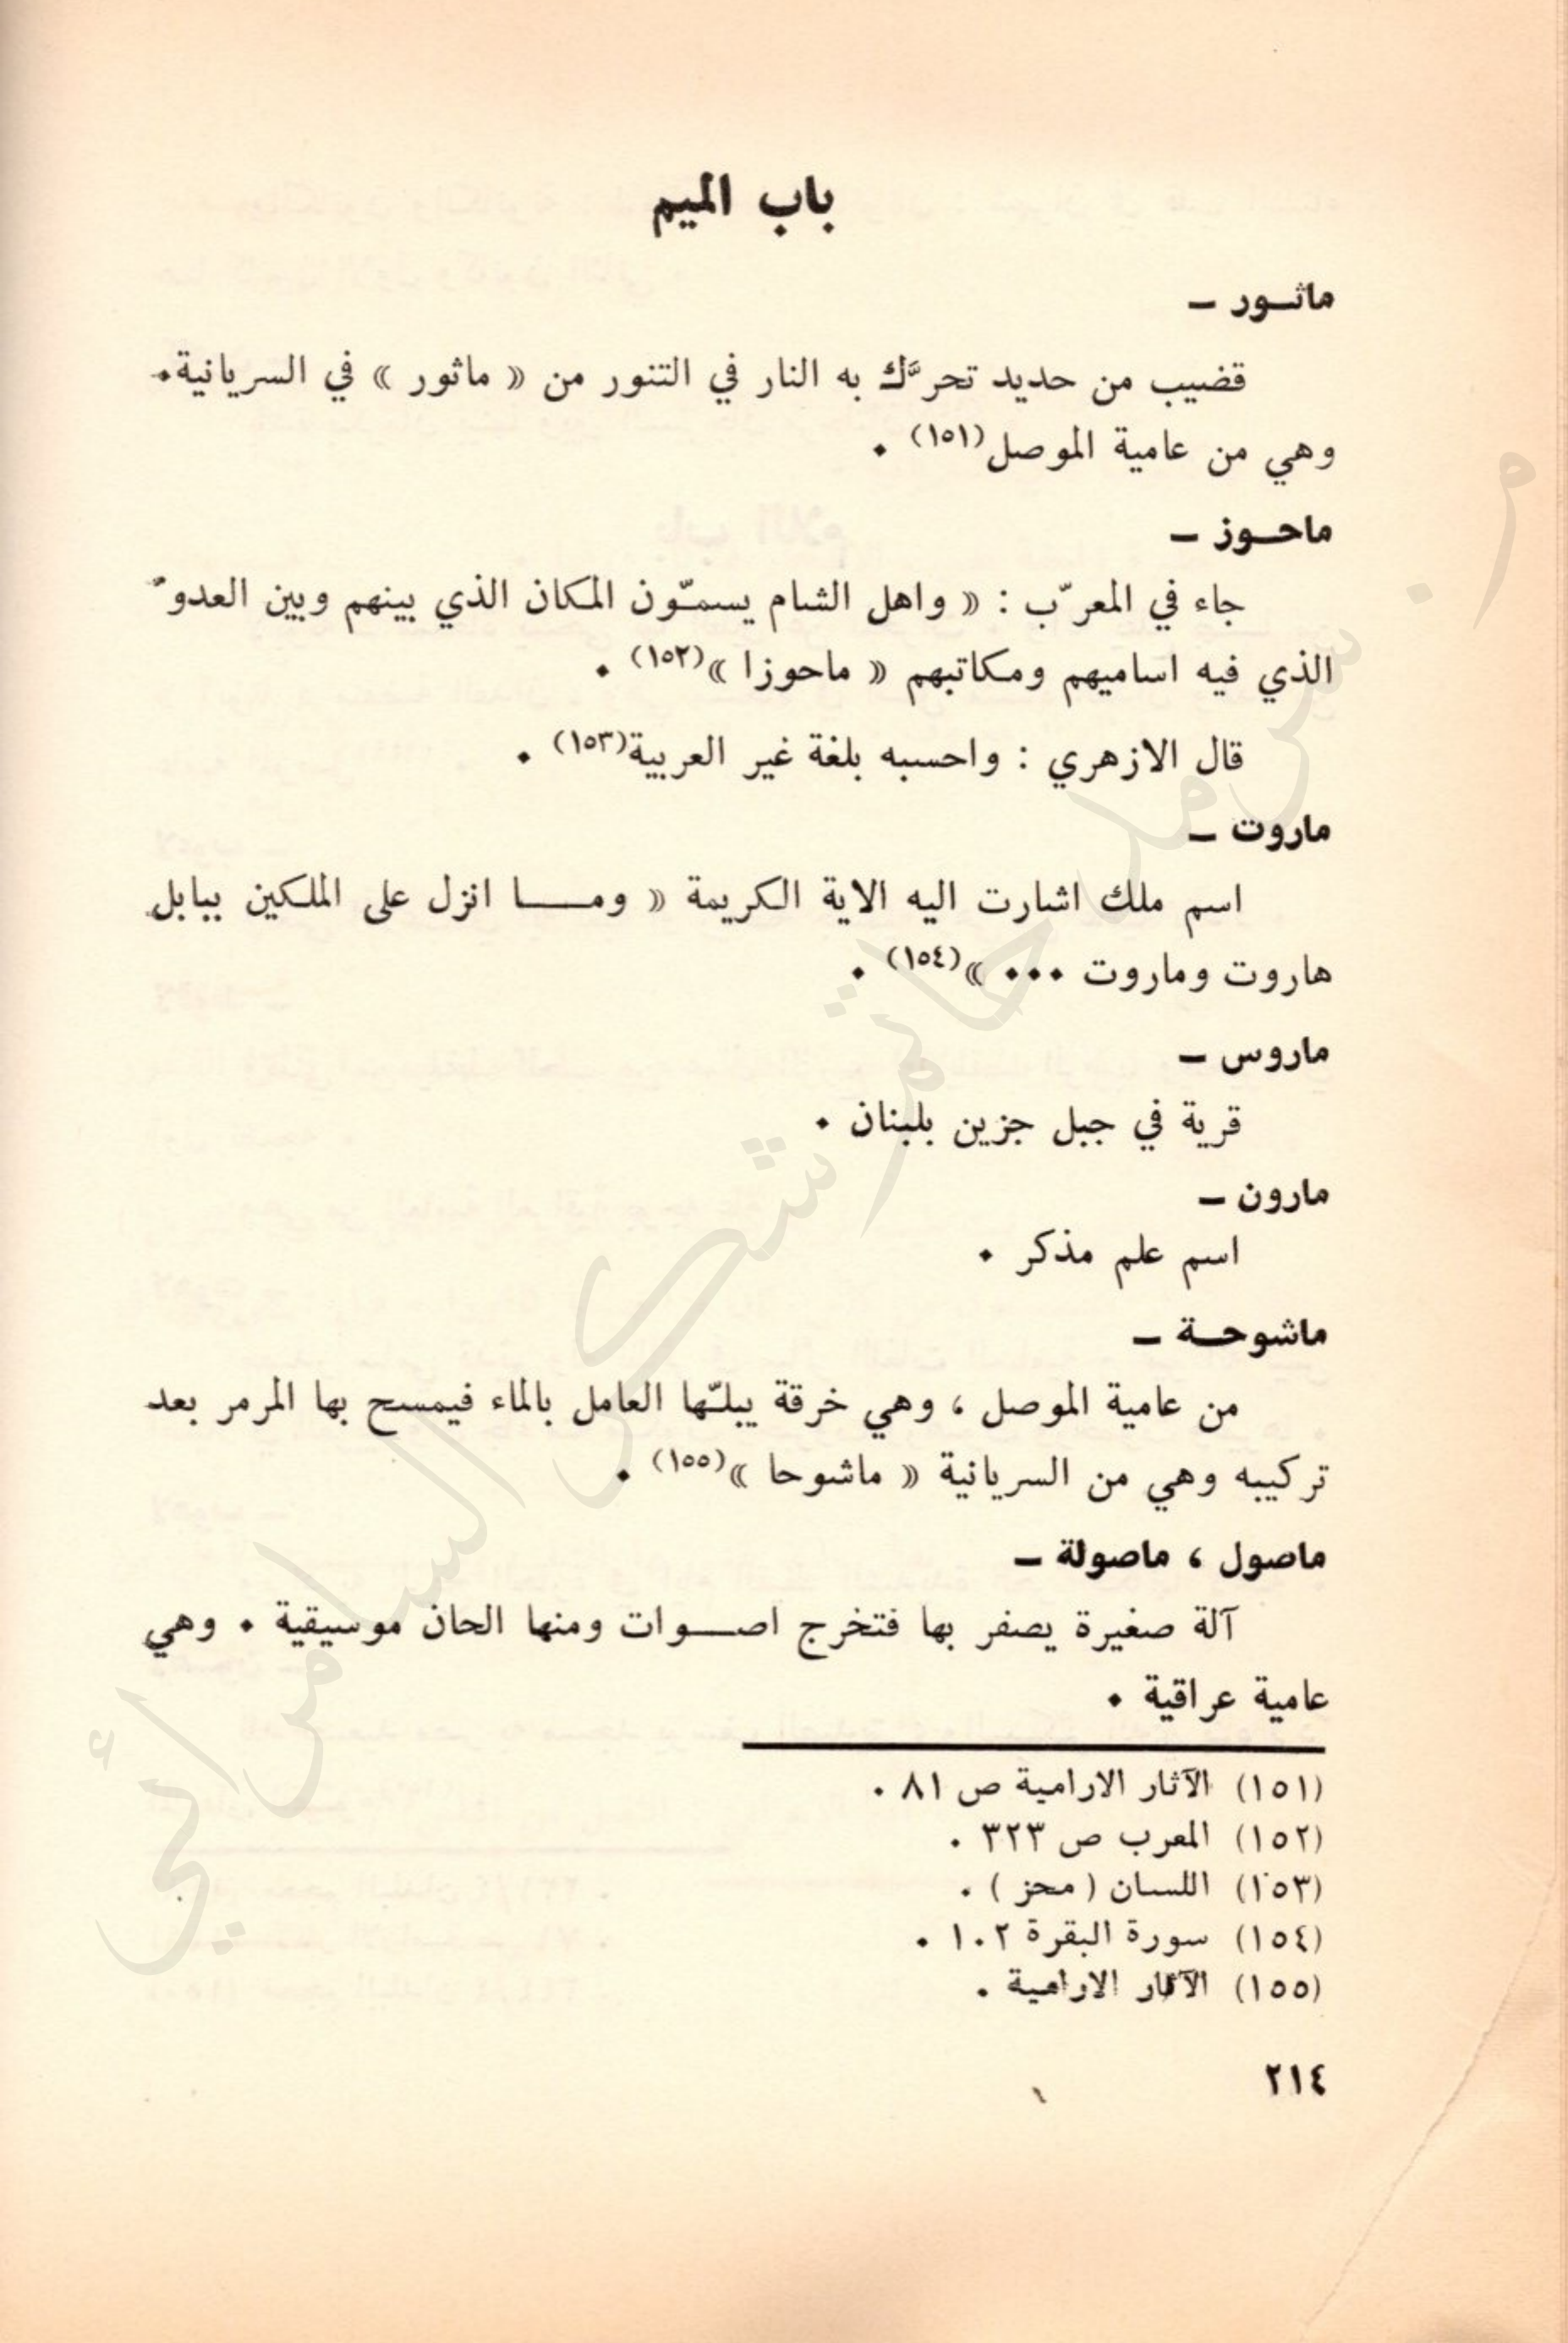 باب الميم
ماثور –
قضيب من حديد تحرَّك به النار في التنور من « ماثور » في السريانية.
وهي من عامية الموصل(١٥١) .
ماحوز –
جاء في المعرّب : « واهل الشام يسمّون المكان الذي بينهم وبين العدوّ
الذي فيه اساميهم ومكاتبهم « ماحوزا »(١٥٢) .
قال الازهري : واحسبه بلغة غير العربية(١٥٣) .
ماروت –
اسم ملك اشارت اليه الاية الكريمة « وما انزل على الملكين ببابل
هاروت وماروت ... »(١٥٤) .
ماروس –
قرية في جبل جزين بلبنان .
مارون –
اسم علم مذكر .
ماشوحة –
من عامية الموصل ، وهي خرقة يبلّها العامل بالماء فيمسح بها المرمر بعد
تركيبه وهي من السريانية « ماشوحا »(١٥٥) .
ماصول ، ماصولة –
آلة صغيرة يصفر بها فتخرج اصوات ومنها الحان موسيقية . وهي
عامية عراقية .
(١٥١) الآثار الارامية ص ٨١ .
(١٥٢) المعرب ص ٣٢٣ .
(١٥٣) اللسان ( محز ) .
(١٥٤) سورة البقرة ١٠٢ .
(١٥٥) الآثار الارامية .
٢١٤